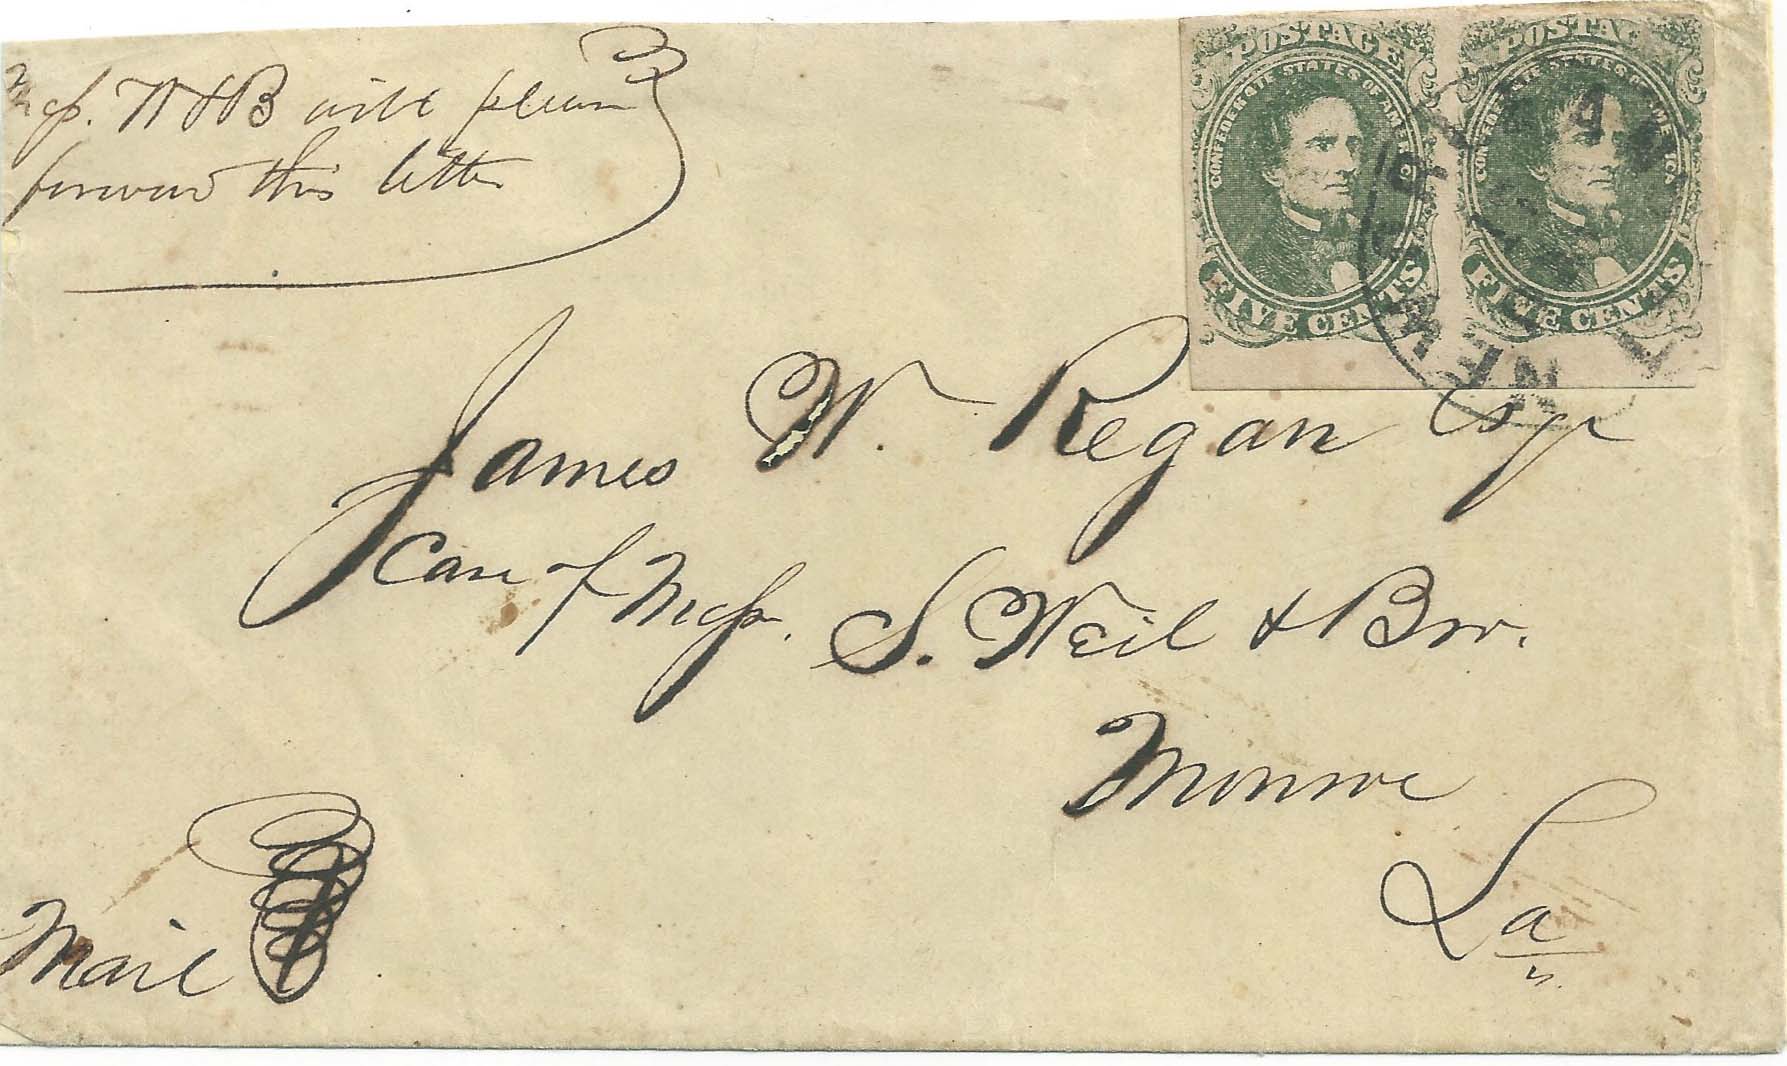 Mess. W & B will please
forward this letter
POSTAGE
CONFEDERATE STATES OF AMERICA
FIVE CENTS
POSTAGE
CONFEDERATE STATES OF AMERICA
FIVE CENTS
NEW
James W. Regan Esqr
Care of Mess. S. Weil & Bro.
Monroe
La
Mail